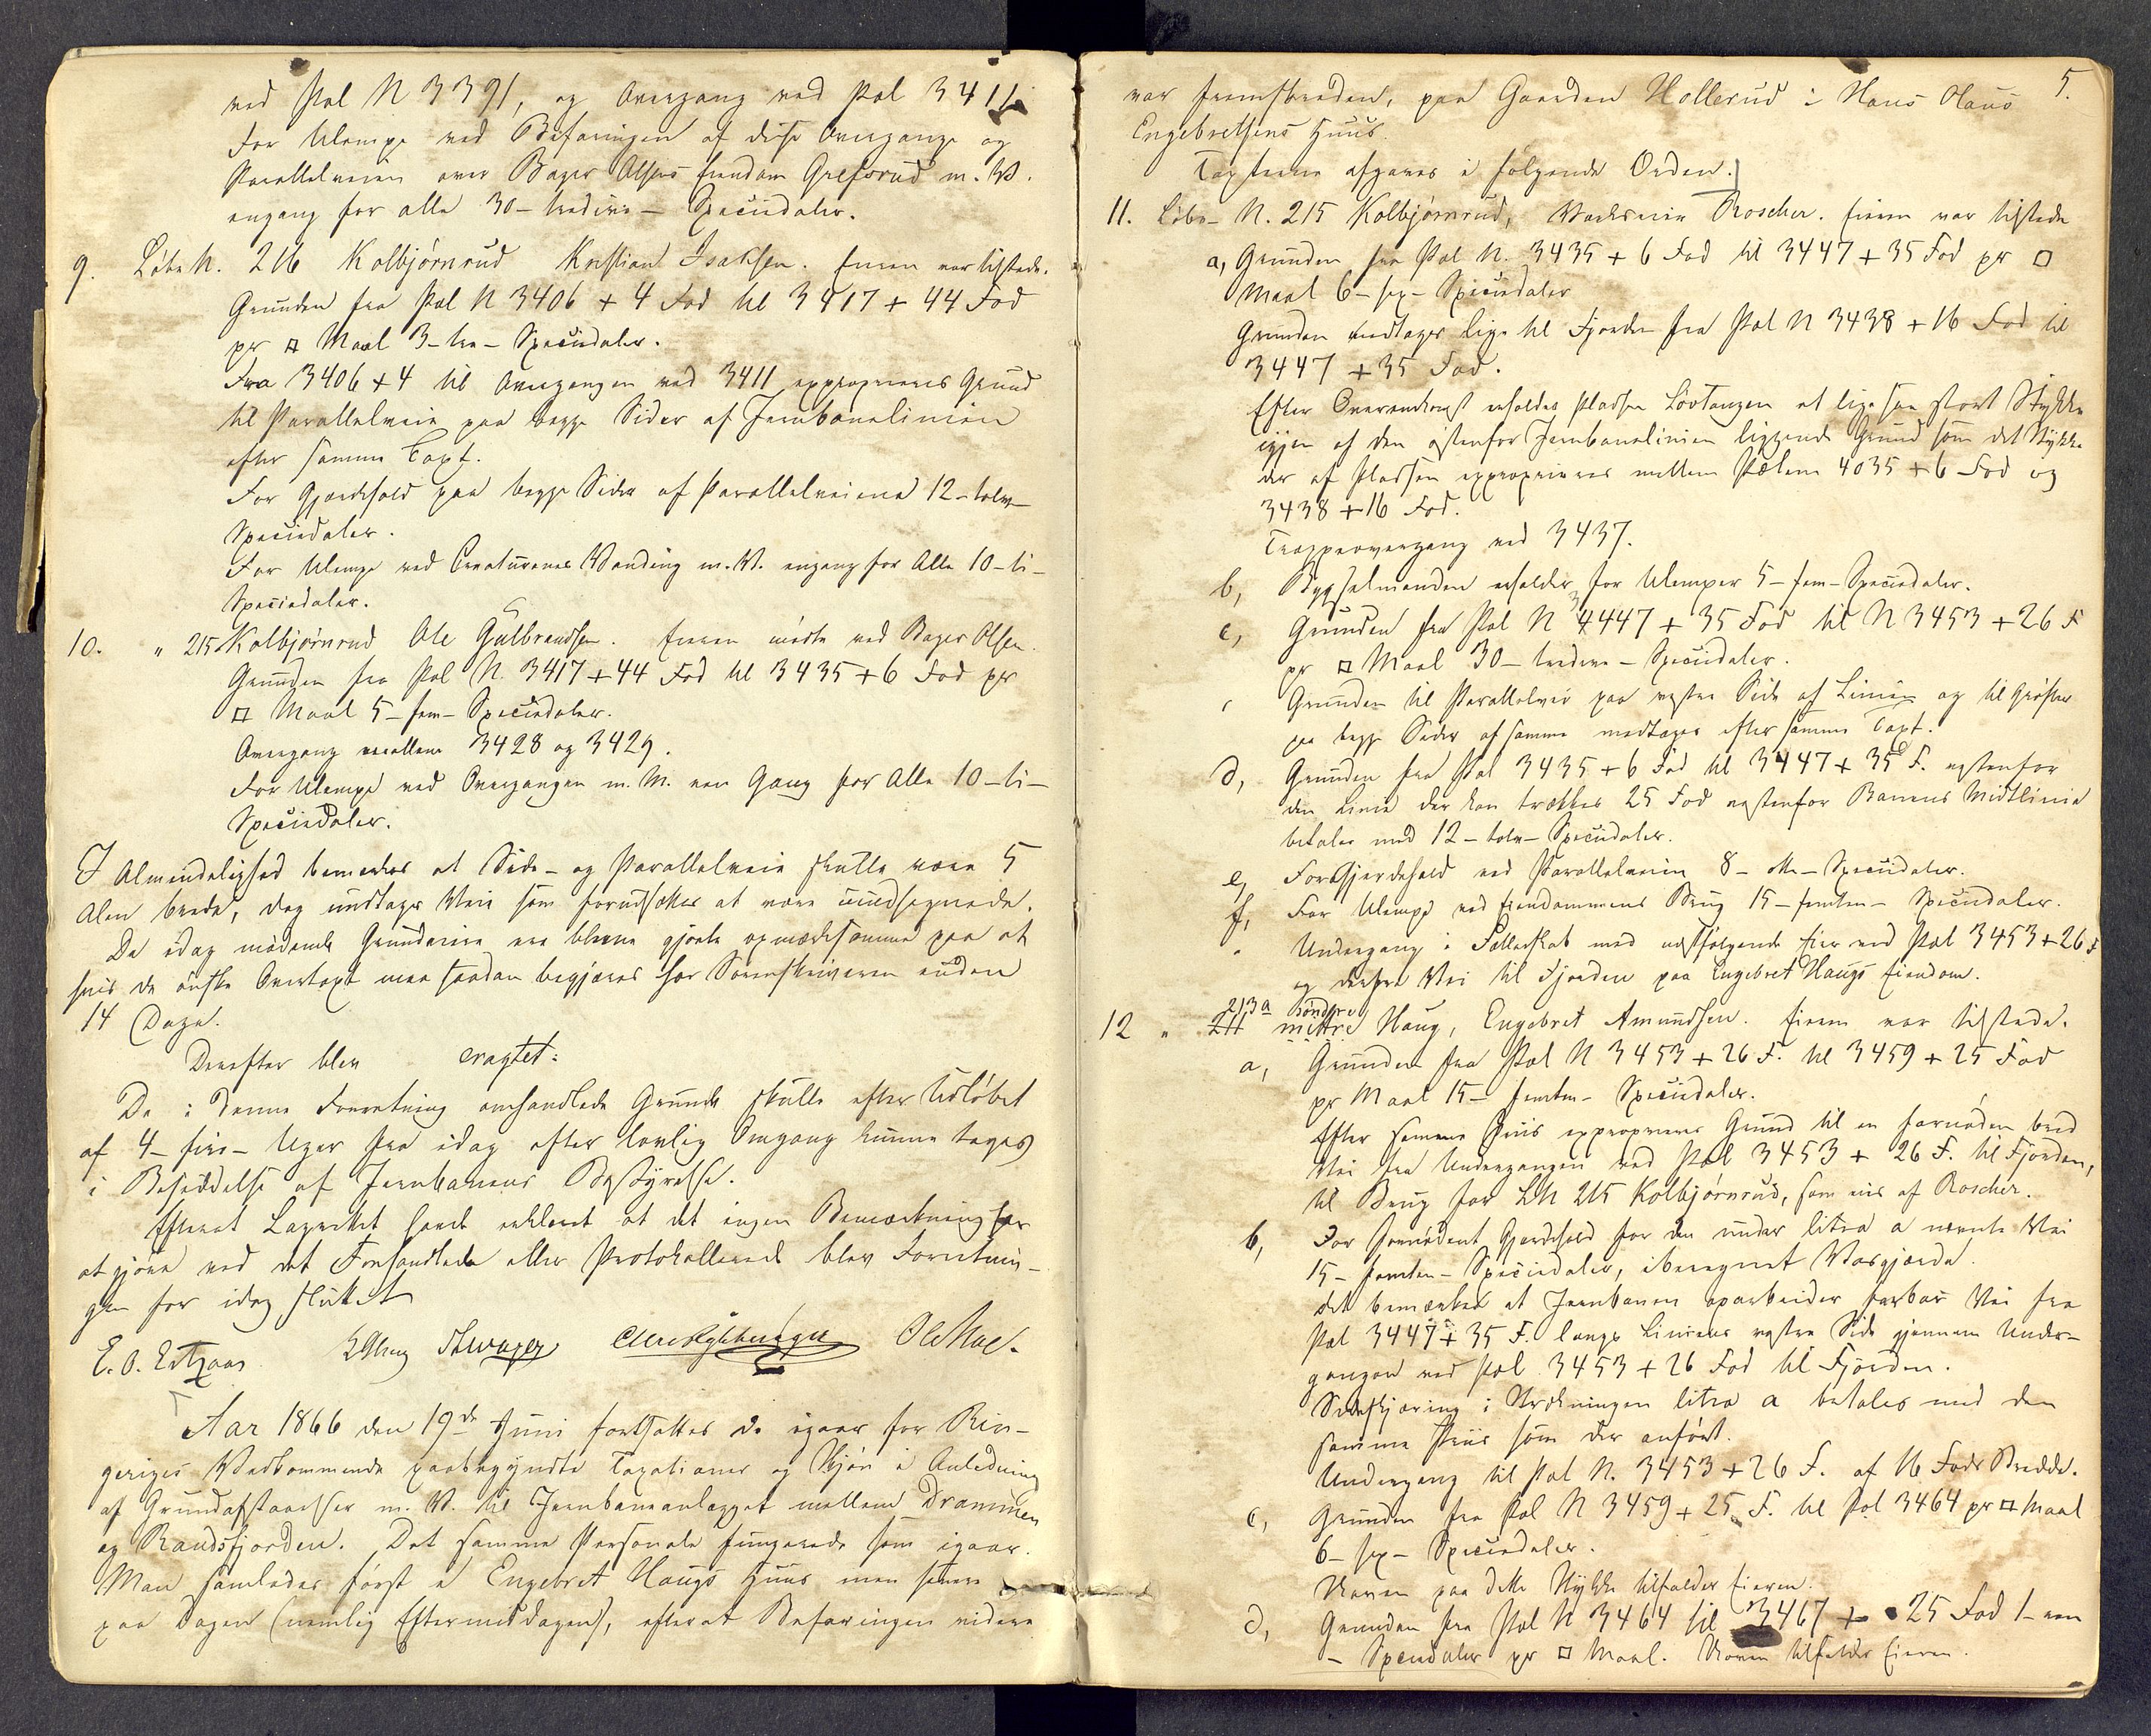 ved Pæl N 3391, og Overgang ved Pæl 3411
For Ulempe ved Befaringen af disse Overgange og
Parallelveien over Bager Olsens Eiendom Grefsrud m. V.
engang for alle 30 - tredive - Speciedaler.
9. Løbe N. 216 Kolbjørnrud Kristian Isaksen. Eieren var tilstede.
Grunden fra Pæl N 3406 + 4 Fod til 3417 + 44 Fod
pr □ Maal 3 - tre - Speciedaler.
Fra 3406 + 4 til Overgangen ved 3411 exproprieres Grund
til Parallelveie paa begge Sider af Jernbanelinien
efter samme Taxt.
For Gjærdehold paa begge Sider af Parallelveiene 12 - tolv -
Speciedaler.
For Ulempe ved Creaturenes Vanding m. V. engang for Alle 10 - ti -
Speciedaler.
10. " 215 Kolbjørnrud Ole Gulbrandsen. Eieren mødte ved Bager Olsen.
Grunden fra Pæl N. 3417 + 44 Fod til 3435 + 6 Fod pr
□ Maal 5 - fem - Speciedaler.
Overgang mellem 3428 og 3429.
For Ulempe ved Overgangen m. V. een Gang for Alle 10 - ti -
Speciedaler.
I Almindelighed bemærkes at Side- og Parallelveie skulle være 5
Alen brede, dog undtages Veie som forudsættes at være
De idag mødende Grundeiere ere blevne gjorte opmærksomme paa at
hvis de ønske Overtaxt maa saadan begjæres hos Sorenskriveren inden
14 Dage.
Derefter blev eragtet:
De i denne Forretning omhandlede Grunde skulle efter Udløbet
af 4 - fire - Uger fra idag efter lovlig Omgang kunne tages
i Besiddelse af Jernbanens Bestyrelse.
Efterat Lagrettet havde erklæret at det ingen Bemærkning har
at gjøre ved det Forhandlede eller Protokollerede blev Forretnin-
gen for idag sluttet
E. O.
Aar 1866 den 19de Juni fortsattes de igaar for Rin-
geriges Vedkommende paabegyndte Taxationer og Skjøn i Anledning
af Grundafstaaelser m. V. til Jernbaneanlægget mellem Drammen
og Randsfjorden. Det samme Personale fungerede som igaar.
Man samledes først i Engebret Haugs Huus men senere
paa Dagen (nemlig Eftermiddagen), efterat Befaringen videre
5.
var fremskreden, paa Gaarden Hollerud i Hans Olaus
Engebretsens Huus.
Taxterne afgaves i følgende Orden.
11. Løbe- N. 215 Kolbjørnrud, Roscher. Eieren var tilstede
a, Grunden fra Pæl N. 3435 + 6 Fod til 3447 + 35 Fod pr □
Maal 6 - sex - Speciedaler
Grunden medtages lige til Fjorden fra Pæl N 3438 + 16 Fod til
3447 + 35 Fod.
Efter Overenskomst erholder Pladsen Løvtangen et lige saa stort Stykke
igjen af den østenfor Jernbanelinien liggende Grund som det Stykke
der af Pladsen exproprieres mellem Pælene 4035 + 6 Fod og
3438 + 16 Fod.
Trappeovergang ved 3437.
b, Bygselmanden erholder for Ulemper 5 - fem - Speciedaler.
c, Grunden fra Pæl N 3447 + 35 Fod til N 3453 + 26 F
pr □ Maal 30 - tredive - Speciedaler.
Grunden til Parallelvei paa vestre Side af Linien og til Grøfter
paa begge Sider af samme medtages efter samme Taxt.
d, Grunden fra Pæl 3435 + 6 Fod til 3447 + 35 F. vestenfor
den Linie der kan trækkes 25 Fod vestenfor Banens Midtlinie
betales med 12 - tolv - Speciedaler.
e, For Gjerdehold ved Parallelveien 8 - otte - Speciedaler.
f, For Ulempe ved Eiendommens Brug 15 - femten - Speciedaler.
Undergang i Fællesskab med næstfølgende Eier ved Pæl 3453 + 26 F
og derfra Vei til Fjorden paa Engebret Haugs Eiendom.
213a søndre
12 " 211 mittre Haug, Engebret Amundsen. Eieren var tilstede.
a, Grunden fra Pæl N 3453 + 26 F. til 3459 + 25 Fod
pr Maal 15 - femten - Speciedaler.
Efter samme Priis exproprieres Grund til en fornøden bred
Vei fra Undergangen ved Pæl 3453 + 26 F. til Fjorden,
til Brug for LN 215 Kolbjørnrud, som eies af Roscher.
b, For fornødent Gjerdehold for den under litra a nævnte Vei
15 - femten - Speciedaler, iberegnet
Det bemærkes at Jernbanen oparbeider farbar Vei fra
Pæl 3447 + 35 F. langs Liniens vestre Side gjennem Under-
gangen ved Pæl 3453 + 26 Fod til Fjorden.
Sideskjæring i Strækningen litra a betales med den
samme Priis som der anført.
Undergang til Pæl N. 3453 + 26 F. af 16 Fods Bredde.
c, Grunden fra Pæl N 3459 + 25 F. til Pæl 3464 pr □ Maal
6 - sex - Speciedaler.
Skoven paa dette Stykke tilfalder Eieren.
d, Grunden fra Pæl N 3464 til 3467 + 25 Fod 1 - een
- Speciedaler pr □ Maal. Skoven tilfalder Eieren.